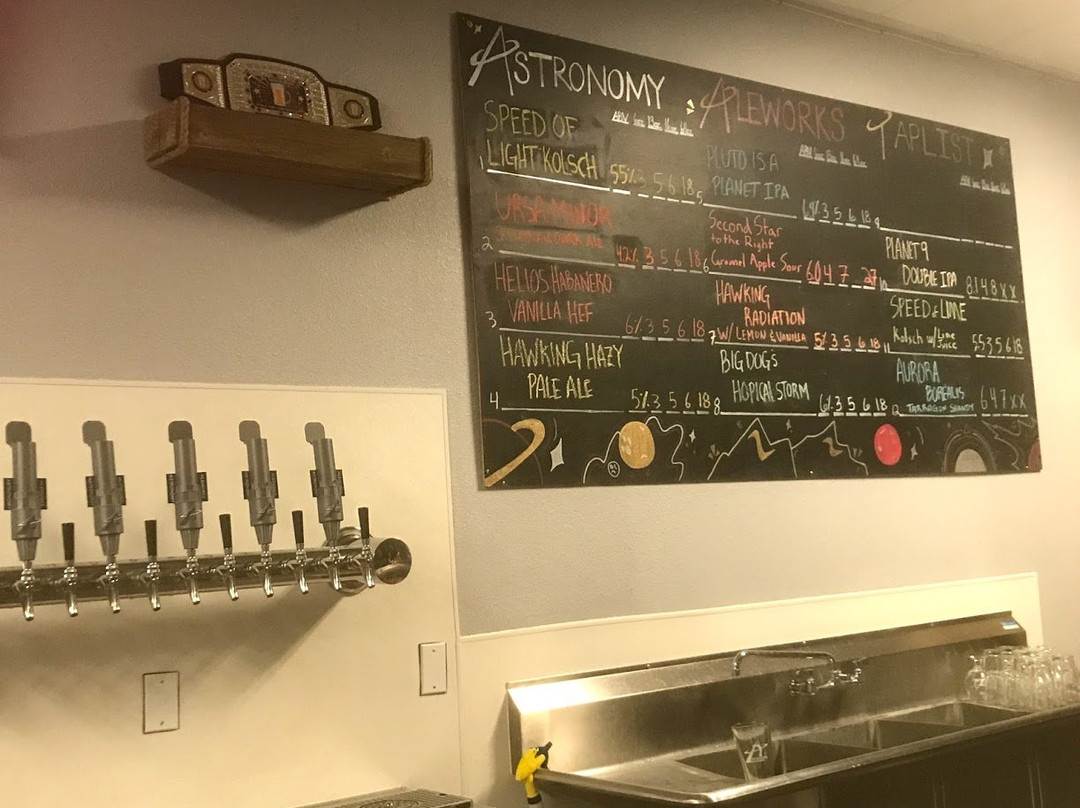 ASTRONOMY ALEWORKS TAPLIST
SPEED OF
1 LIGHT KOLSCH 5.5% 3 5 6 18
URSA MINOR
2 4.2% 3 5 6 18
HELIOS HABANERO
3 VANILLA HEF 6% 3 5 6 18
HAWKING HAZY
4 PALE ALE 5% 3 5 6 18
PLUTO IS A
5 PLANET IPA 3 5 6 18
Second Star
to the Right
6 Caramel Apple Sour 4 7
HAWKING
RADIATION
7 W/ LEMON & VANILLA 5% 3 5 6 18
BIG DOG'S
8 HOPICAL STORM 6% 3 5 6 18
9
PLANET 9
10 DOUBLE IPA 8.1 4 8 X X
SPEED of LIME
Kolsch w/ Lime
11 Juice 5.5 3 5 6 18
AURORA
BOREALIS
12 TARRAGON SHANDY 6 4 7 X X